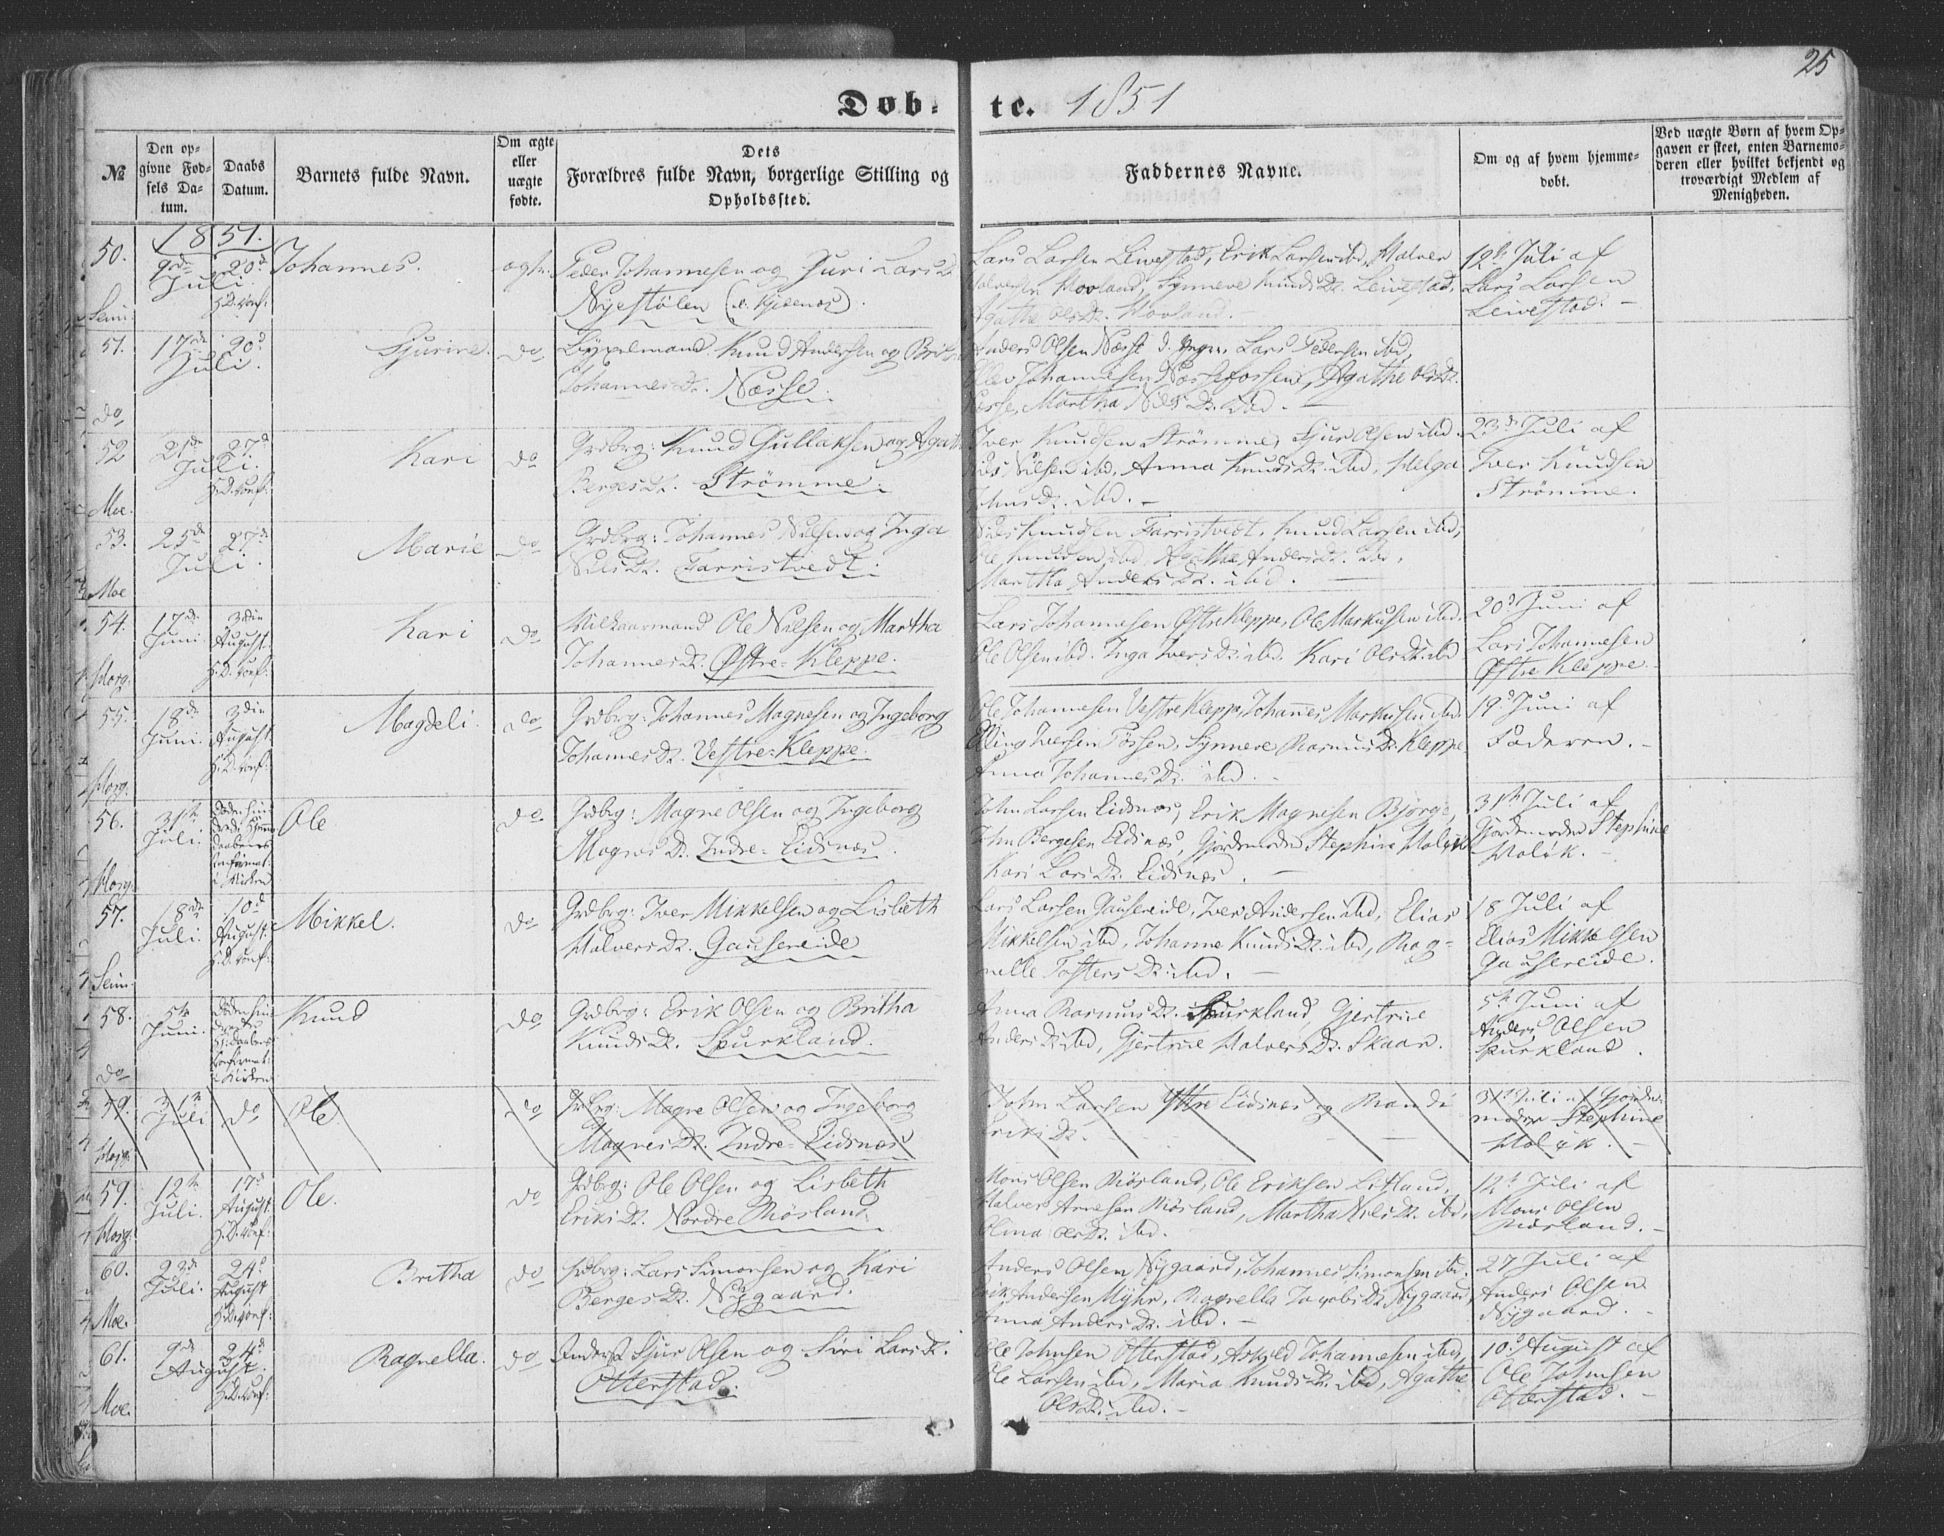 25
Døb- te. 1851
№
Den op-
givne Fød-
sels Da-
tum.
Daabs
Datum.
Barnets fulde Navn.
Om ægte
eller
uægte
fødte.
Dets
Forældres fulde Navn, borgerlige Stilling og
Opholdssted.
Faddernes Navne.
Om og af hvem hjemme-
døbt.
Ved uægte Børn af hvem Op-
gaven er skeet, enten Barnemo-
deren eller hvilket bekjendt og
troværdigt Medlem af
Menigheden.
1851.
50.
9de
Juli
20d
Johannes.
Peder Johannesen og Guri Lars D.
Nyestølen
Lars Larsen Leivestad, Erik Larsen ibd, Halver
Halversen Hovland, Synneve Knuds D. Leivestad,
Agathe Ols D. Hovland.
19de Juli af
Lars Larsen
Leivestad.
51.
17de
Juli.
20d
Sjurine.
do
Knud Andersen og Brit
Johannes D. Næsse.
Anders Olsen Næsse d. yngr., Lars Pedersen ibd,
Johannesen Næssefossen, Agathe Ols D.
Næsse, Martha Nils D. ibd.
do
52
21de
Juli.
27d
Kari
do
Grdbrg: Knud Gullaksen og Agat
Berges D. Strømme.
Iver Knudsen Strømme, Sjur Olsen ibd.
Nils Nilsen ibd, Anna Knuds D. ibd, Helga
Johns D. ibd.
23d Juli af
Iver Knudsen
Strømme.
Moe.
53.
25de
Juli.
27d
Marie
do
Grdbrg: Johannes Nilsen og Inga
Nils D. Farristvedt.
Nils Knudsen Farristvedt, Knud Larsen ibd,
Ole Knudsen ibd, Agathe Anders D. ibd,
Martha Anders D. ibd.
Moe
54.
17de
Juni.
3die
August.
Kari
do
Ole Nilsen og Martha
Johannes D. Østre-Kleppe.
Lars Johannesen Østre Kleppe, Ole Markusen ibd.
Ole Olsen ibd. Inga Ivers D. ibd. Kari Ols D. ibd
20d Juni af
Lars Johannesen
Østre Kleppe.
55.
18de
Juni.
3die
August
Magdeli.
do
Grdbrg: Johannes Magnesen og Ingeborg
Johannes D. Vestre-Kleppe.
Ole Johannesen Vestre Kleppe, Johannes Markusen ibd
Elling Iversen Fossen, Synneve Rasmus D. Kleppe
Anna Johannes D. ibd.
19d Juni af
Faderen.
56.
31te
Juli.
Ole
do
Grdbrg: Magne Olsen og Ingeborg
Magnes D. Indre-Eidsnæs.
John Larsen Eidsnæs, Erik Magnesen Bjørge,
John Bergesen Eidsnæs, Gjordemoder Stephine
Kari Lars D. Eidsnæs.
31te Juli af
Gjordemoder Stephine
57.
18de
Juli.
10d
August.
Mikkel.
do
Grdbrg: Iver Mikkelsen og Lisbeth
Halvers D. Gausereide
Lars Larsen Gausereide, Iver Andersen ibd, Elias
Mikkelsen ibd, Johanne Knuds D. ibd, Rag-
nelle Tosters D. ibd.
18 Juli af
Elias Mikkelsen
Gausereide.
58.
5te
Juni.
Knud
do
Grdbrg: Erik Olsen og Britha
Knuds D. Spurkland.
Anna Rasmus D. Spurkland, Gjertrue
Anders D. ibd, Gjertrue Halvers D. Skaar.
5te Juni af
Anders Olsen
Spurkland.
do
59.
31te
Juli
do
Ole.
do
Grdbrg: Magne Olsen og Ingeborg
Magnes D. Indre-Eidsnæs
John Larsen Yttre Eidsnæs og Randi
Eriks D.
31te Juli af Gjorde-
moder Stephine
59.
12te
Juli.
17d
August
Ole.
do
Grdbrg: Ole Olsen og Lisbeth
Eriks D. Nordre Røsland.
Mons Olsen Røsland, Ole Eriksen Litland,
Halver Arnesen Røsland, Martha Nils D. ibd,
Olina Ols D. ibd.
12te Juli af
Mons Olsen
Røsland.
60.
22de
Juli.
24d
August
Britha
do
Grdbrg: Lars Simonsen og Kari
Berges D. Nygaard.
Anders Olsen Nygaard, Johannes Simonsen ibd.
Erik Andersen Myhr, Ragnella Jacobs D. Nygaard,
Anna Anders D. ibd.
27 Juli af
Anders Olsen
Nygaard.
Moe.
61.
9de
August
24d
Ragnella.
do
Sjur Olsen og Siri Lars D.
Otterstad.
Ole Johnsen Otterstad, Johannesen ibd,
Ole Larsen ibd, Maria Knuds D. ibd, Agathe
Ols D. ibd.
10d August af
Ole Johnsen
Otterstad.
Moe.